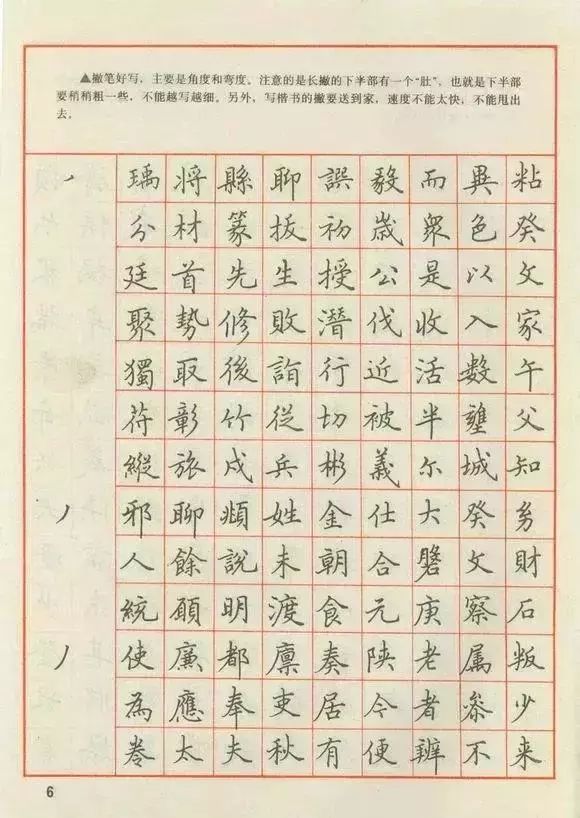 ▲撇笔好写，主要是角度和弯度。注意的是长撇的下半部有一个“肚”，也就是下半部
要稍稍粗一些，不能越写越细。另外，写楷书的撇要送到家，速度不能太快，不能甩出
去。
瑀將縣聊誤毅而異粘
分材篆拔初歲衆色癸
廷首先生授公是以文
聚勢修敗潛伐收入家
獨取後詣行近活數午
苻彰竹從切被半壅父
縱旅戍兵彬義尔城知
邪聊頫姓金仕大癸 
人餘說未朝合文財
統願明渡食元庚察石
使廉都廪奏陝老属叛
為應奉吏居今者叅少
卷太夫秋有便辨不来
6